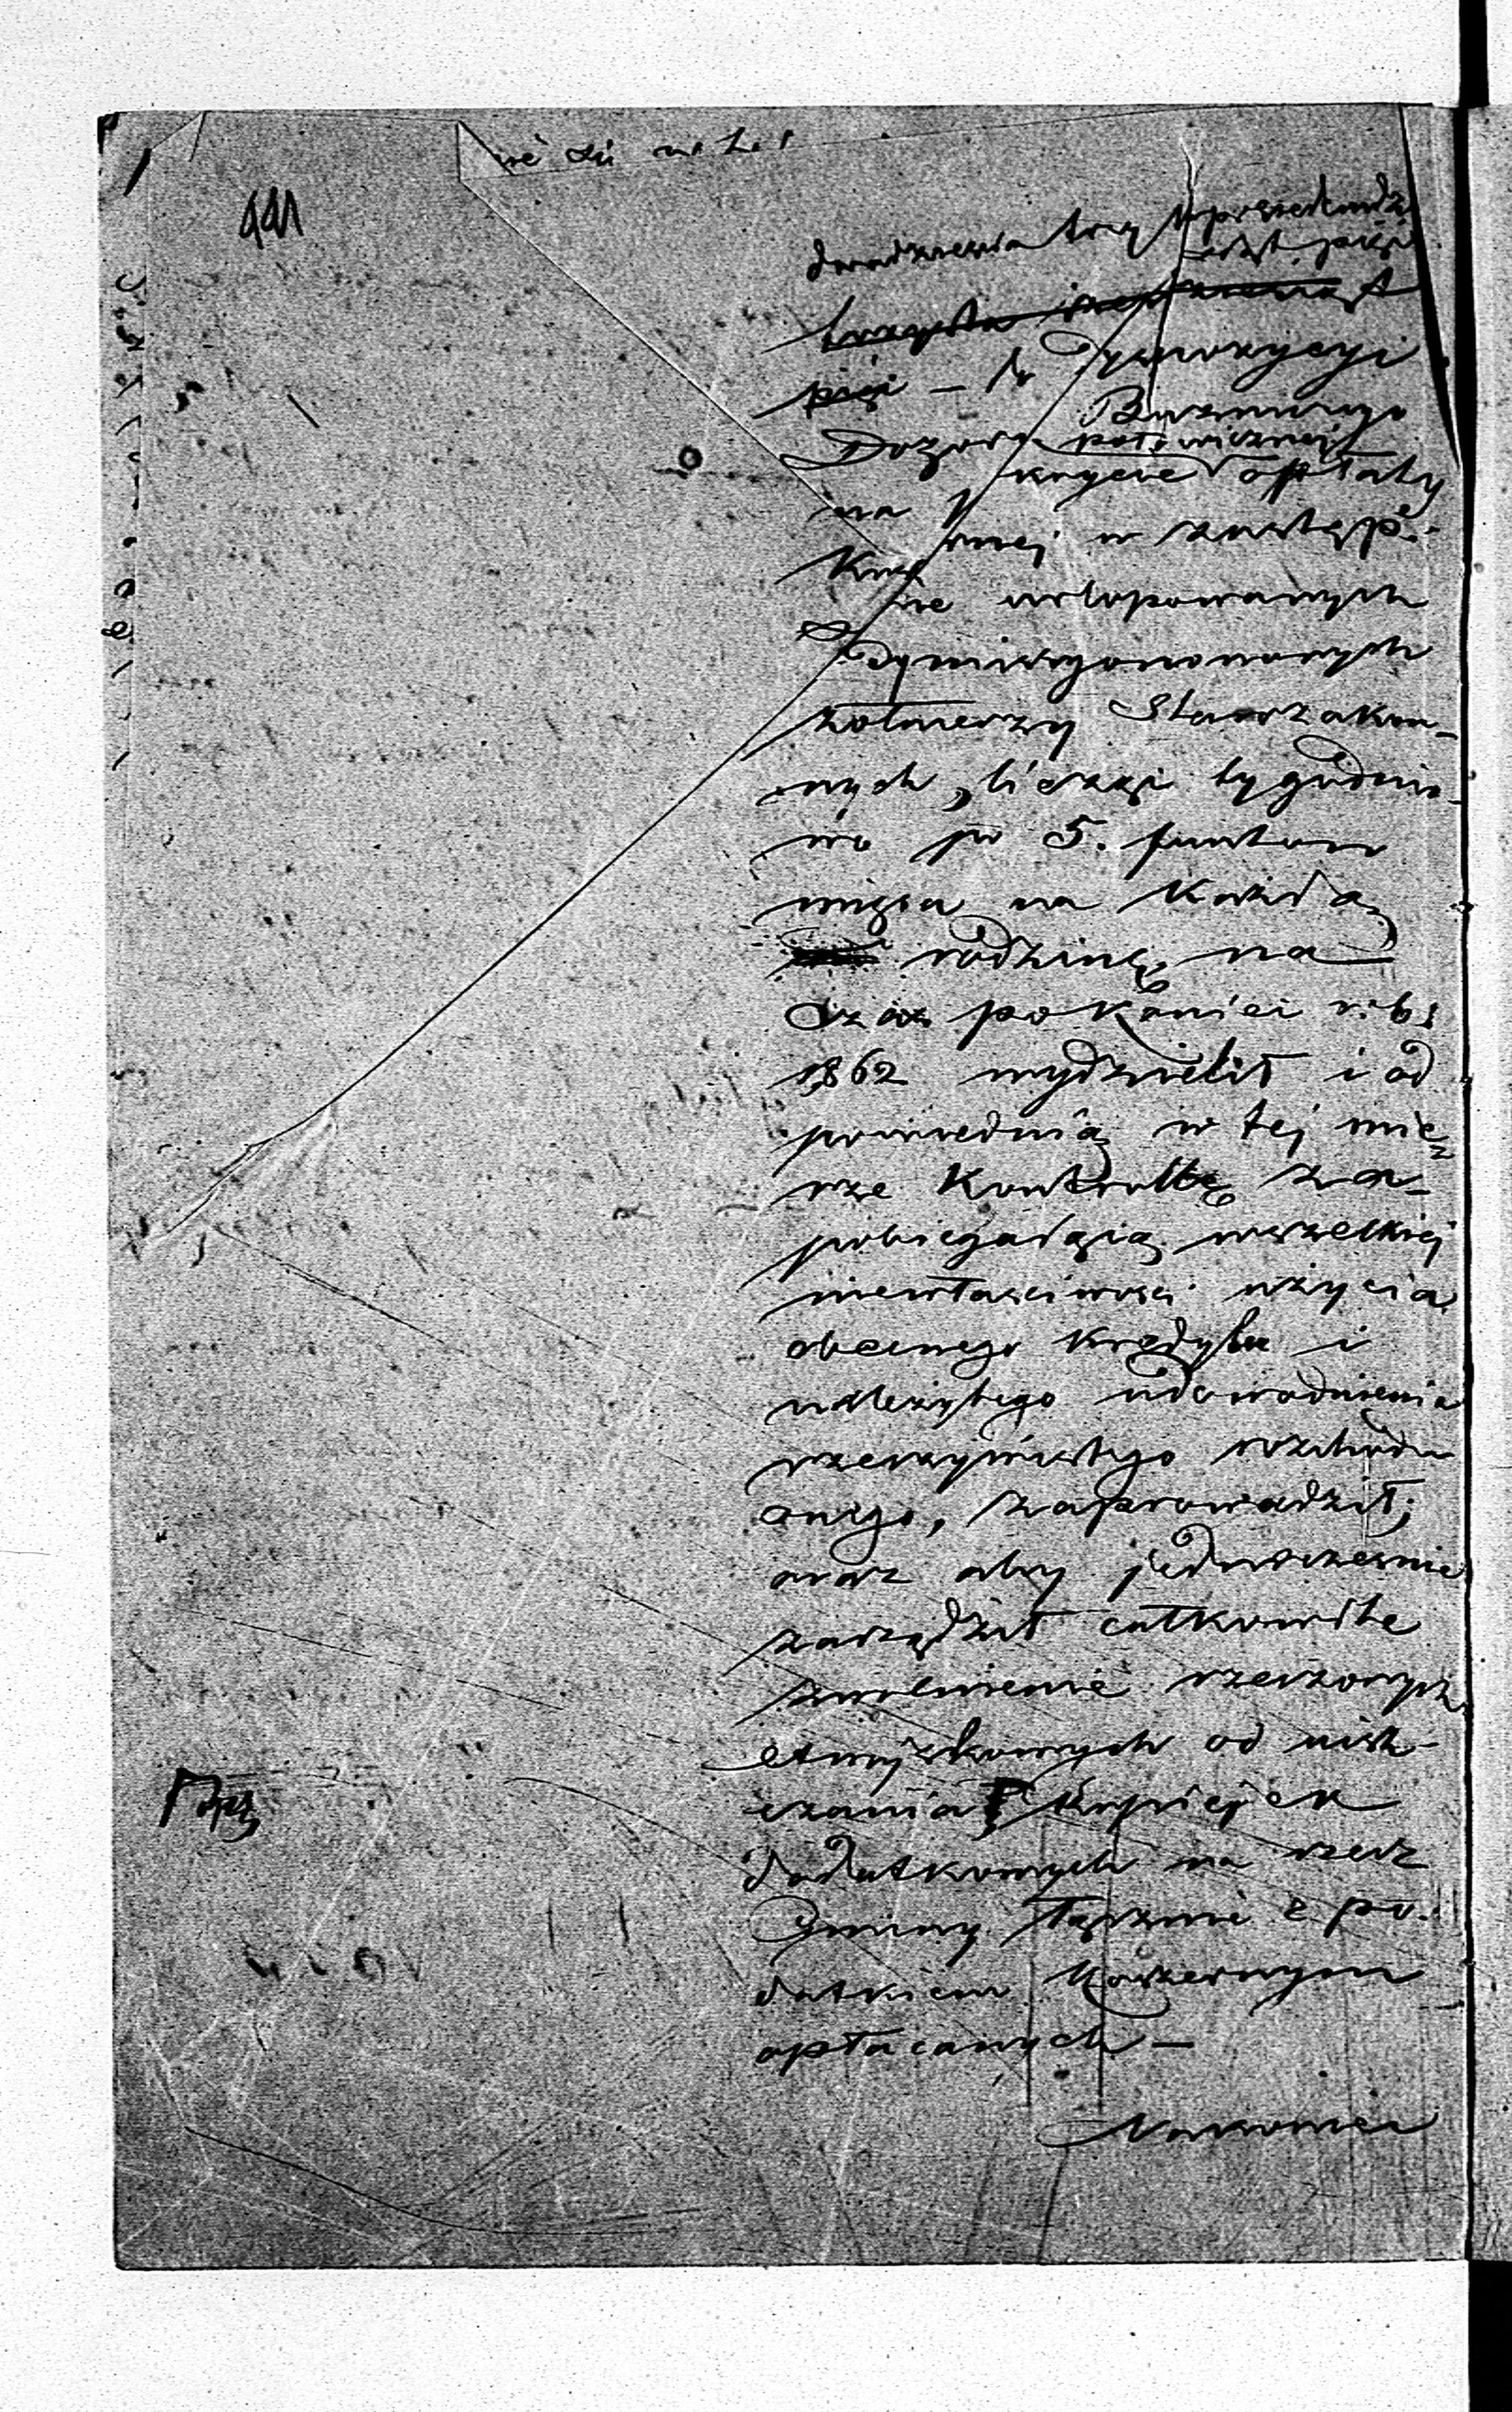 441
dwadzieścia trzy
trzysta
pięć – do Dyspozycyi
Bożniczego
Dozoru połowicznej
na krycie opłaty
w zastęp-
ie urlopowanych
Dymisyonowanych
żołnierzy Starozakon-
nych, licząc tygodnio-
wo po 5. funtów
mięsa na każdą
rodzinę, na
czas po koniec r. b.
1862 wydzielił i od
powiednią w tej mie
rze Kontrollę za-
pobiegającą wszelkiej
niewłaściwości użycia
obecnego kredytu i
należytego udowodnienia
rzeczywistego rozchodu
onego, zaprowadził;
oraz aby jednocześnie
zarządził całkowite
zwolnienie rzeczonych
exwojskowych od uisz-
czania kopiejek
dodatkowych na rzecz
Gminy łącznie z po-
datkiem Koszernym
opłacanych –